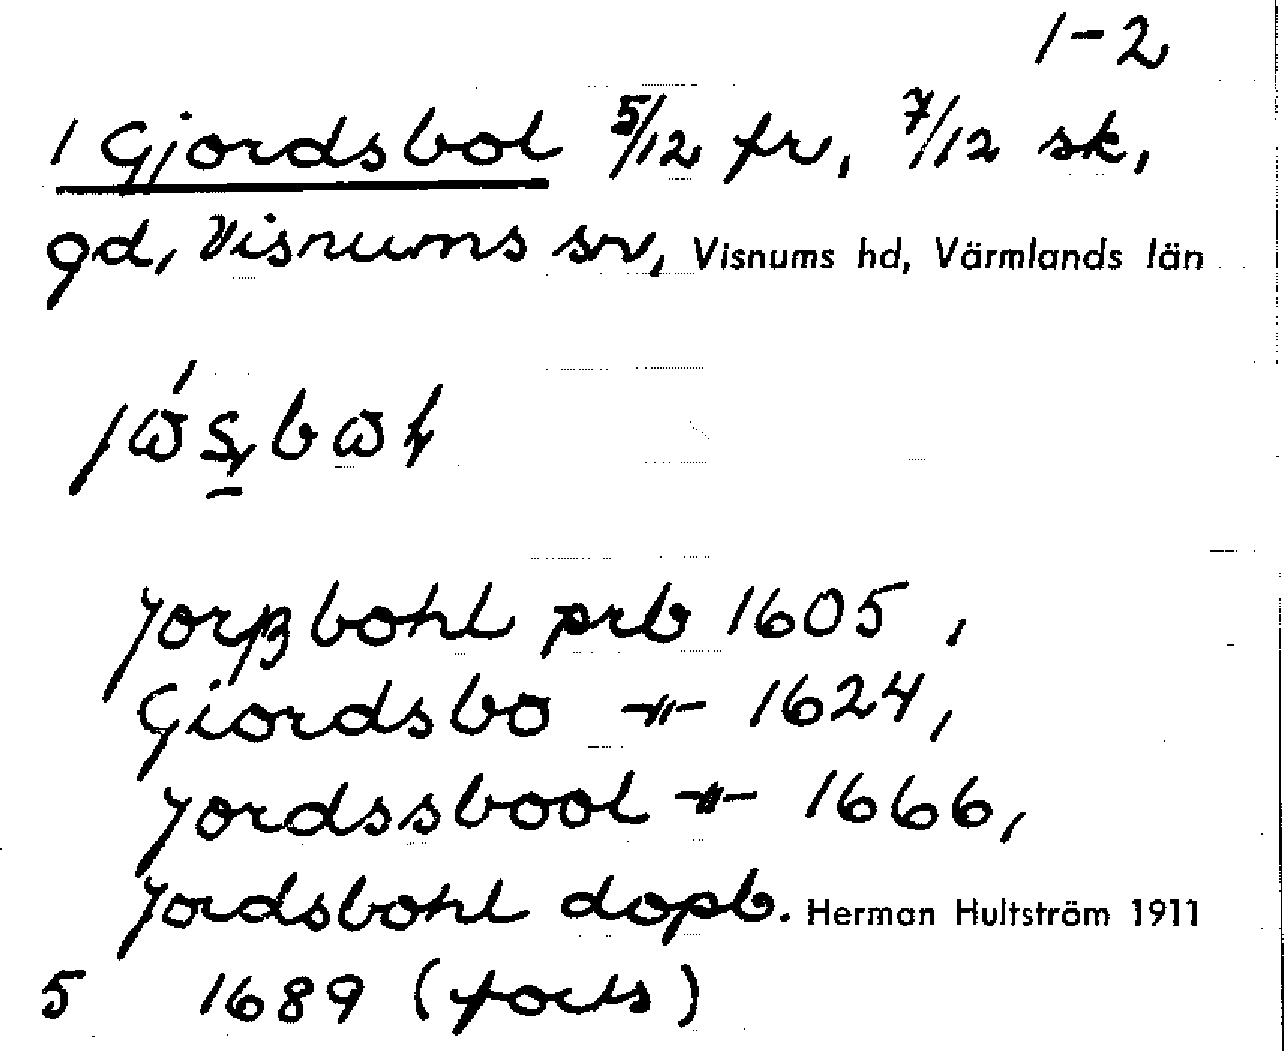 1-2
1 Gjordsbol 5/12 fr, 7/12 sk,
gd, Visnums sn, Visnums hd, Värmlands län
Jorßbohl prb 1605,
Giordsbo -"- 1624,
Jordssbool -"- 1666,
Jordsbohl dopb. Herman Hultström 1911
5 1689 (forts)